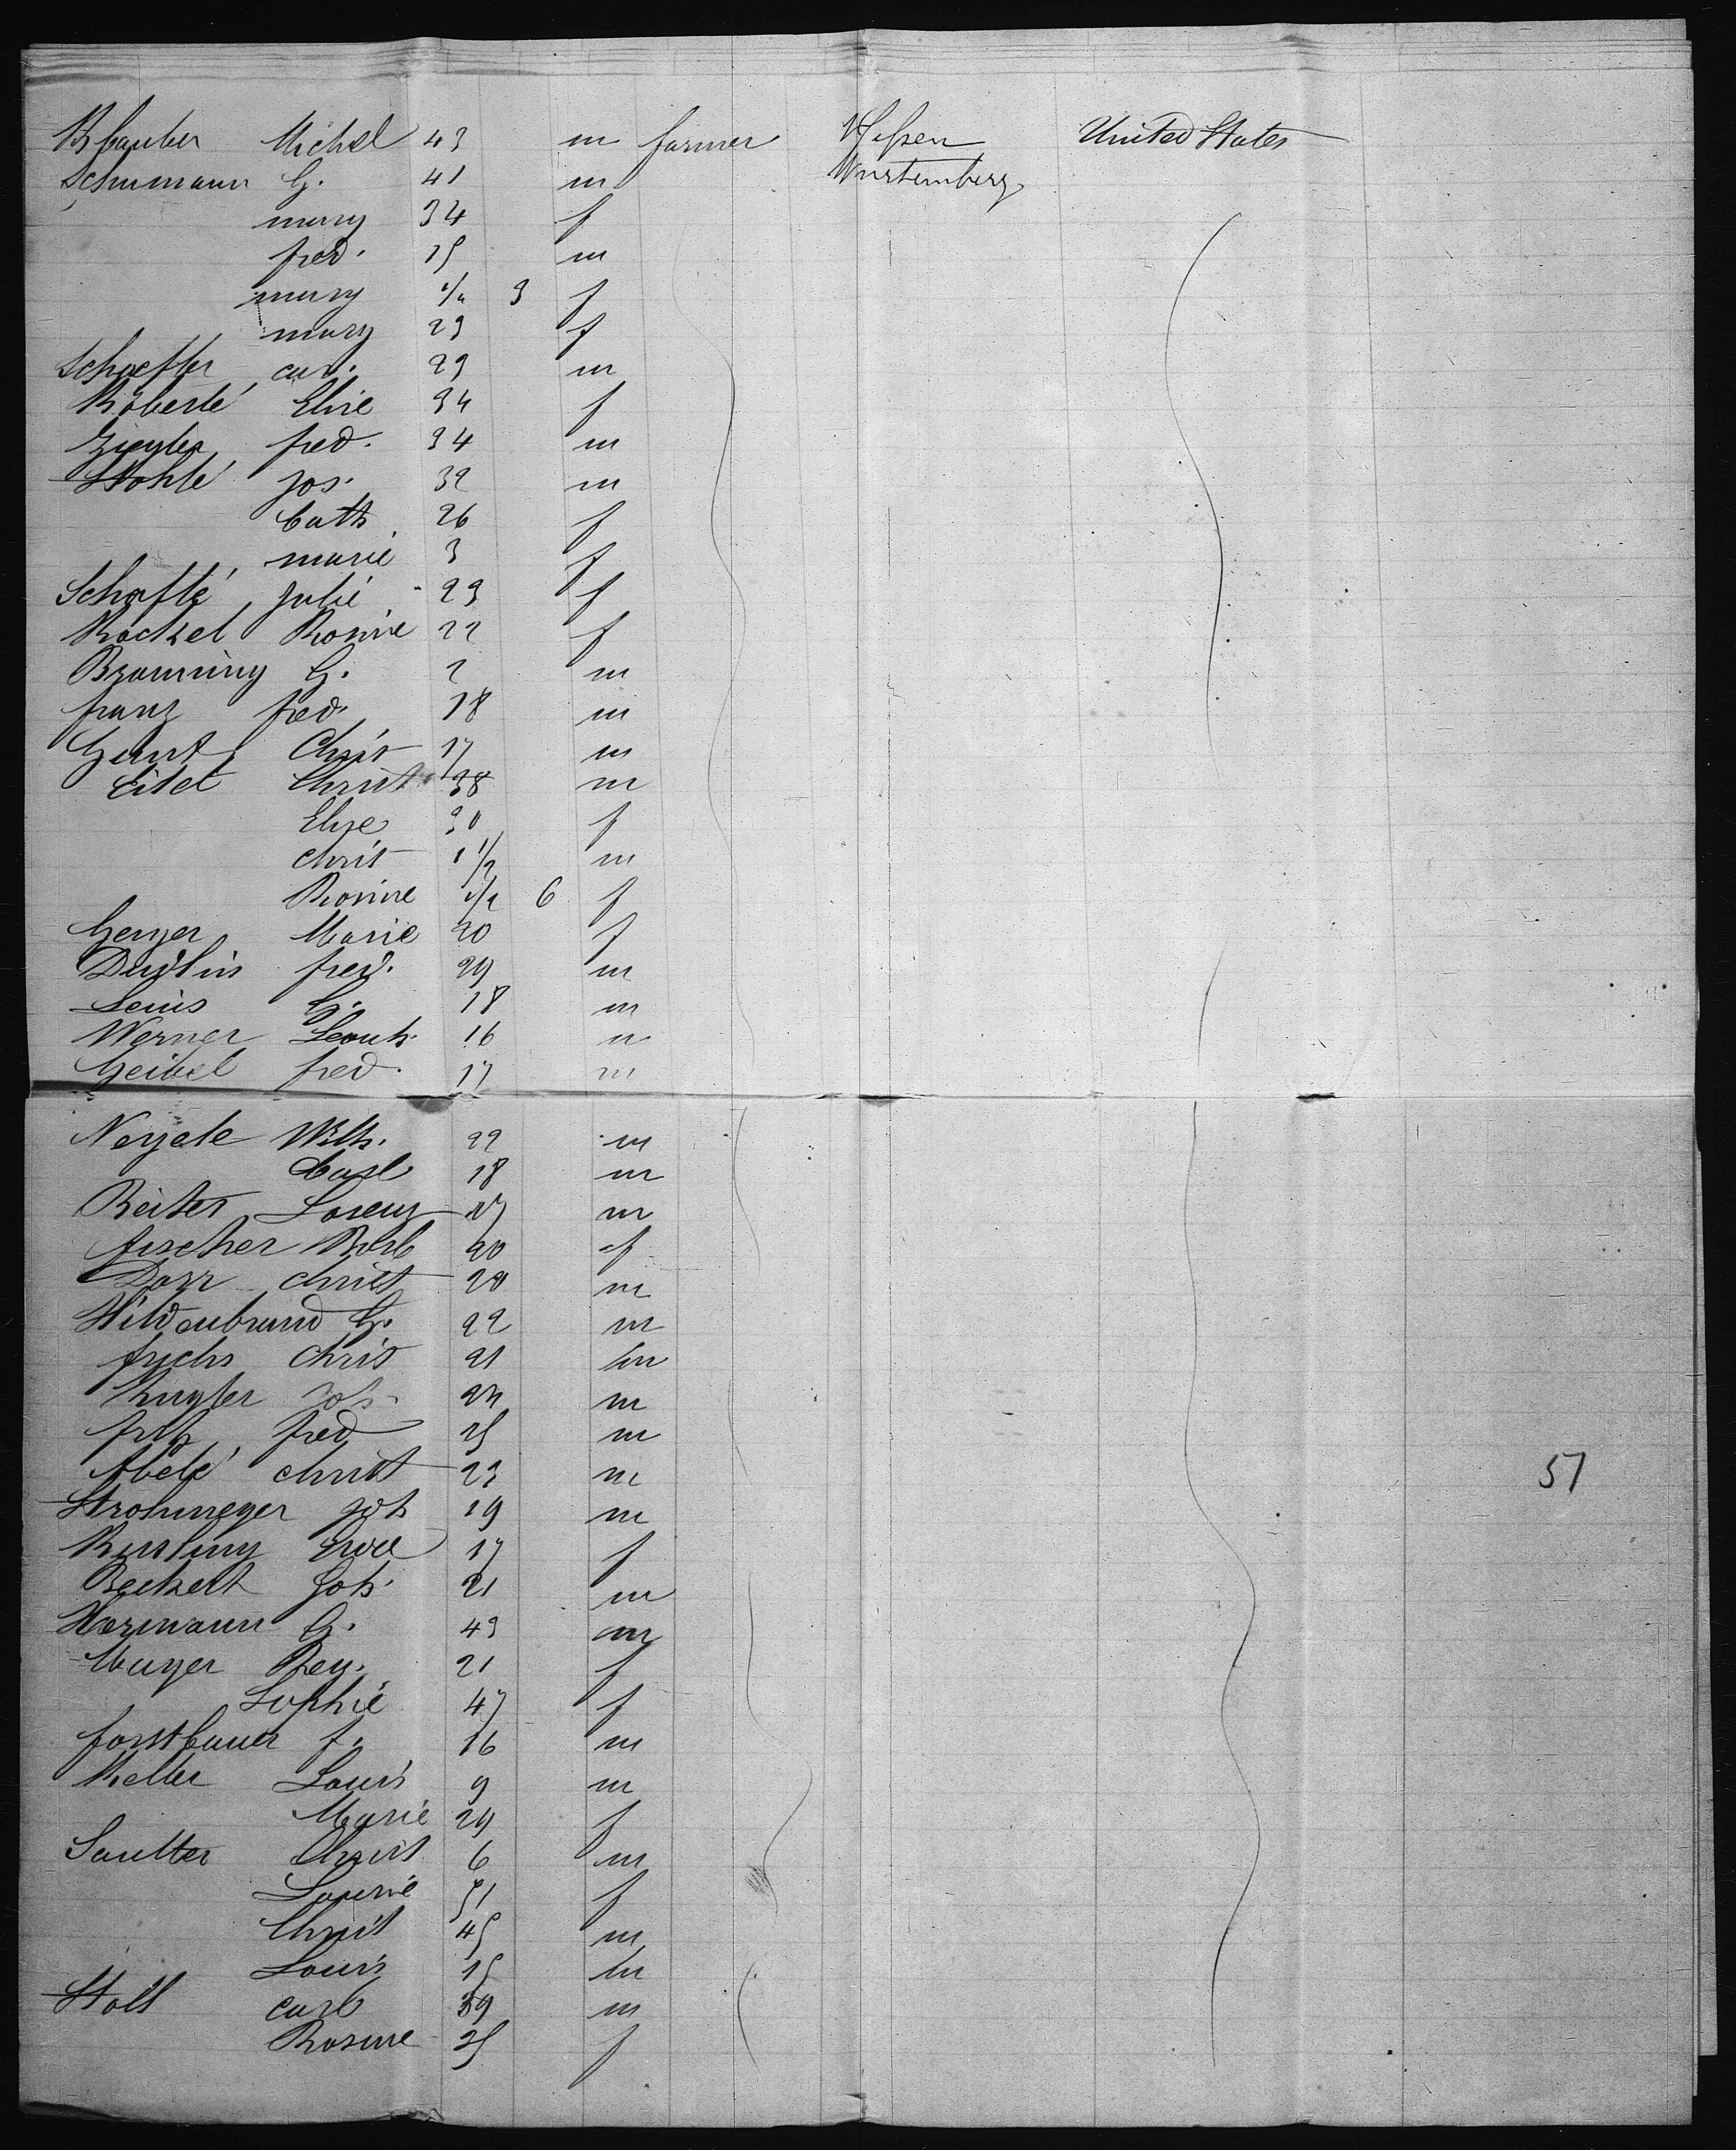 Michel 43 m farmer Hessen United States
Schumann G. 41 m Wurtemberg
mary 34 f
fred. 15 m
mary 3 f
mary 23 f
Schaeffer car. 29 m
Roberlé Elise 34 f
Ziegler fred. 34 m
Stohlé Jos. 32 m
Cath 26 f
marie 3 f
Schaflé Julie 23 f
Rockel Rosine 22 f
Bromming G. 2 m
franz fred. 18 m
Christ 17 m
Eitel Christ 38 m
Elise 30 f
Christ 1 1/2 m
Rosine 1/2 6 f
Marie 20 f
fred. 29 m
G. 18 m
Werner Leonh. 16 m
Geibel fred. 17 m
Wilh. 22 m
Carl 18 m
Reiter Lorenz 17 m
fischer Barb 20 f
Dorr Christ 20 m
Hildenbrand G. 22 m
fuchs Christ 21 m
Kugler Joh. 24 m
fred 25 m
Abelé Christ 23 m
Strohmeyer Joh 19 m
17 f
Beckert Joh. 21 m
Hermann G. 43 m
Mayer Reg. 21 f
Sophie 47 f
forstbauer f. 16 m
Keller Louis 9 m
Marie 29 f
Sautter Christ 6 m
51 f
Christ 45 m
Louis 15 m
Stoll carl 39 m
Rosine 25 f
51